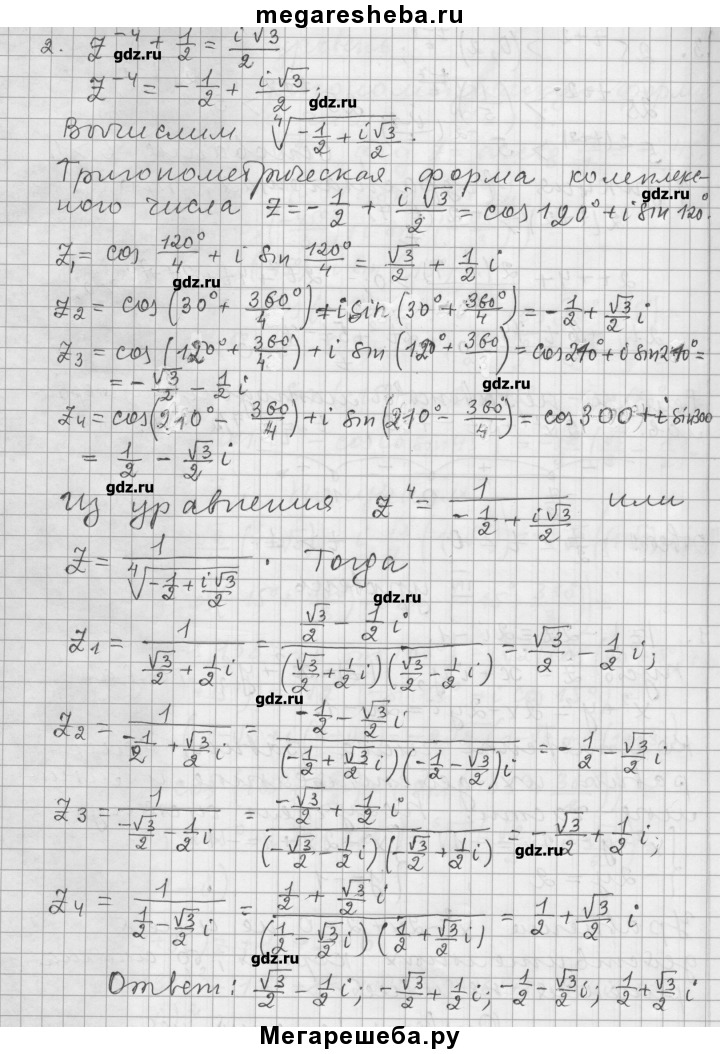 megaresheba.ru
2. z^{-4} + 1/2 = i√3/2
gdz.ru
z^{-4} = -1/2 + i√3/2;
gdz.ru
Вычислим ⁴√(-1/2 + i√3/2).
Тригонометрическая форма комплекс-
gdz.ru
ного числа z = -1/2 + i√3/2 = cos 120° + i sin 120°.
z₁ = cos 120°/4 + i sin 120°/4 = √3/2 + 1/2 i
gdz.ru
z₂ = cos(30° + 360°/4) + i sin(30° + 360°/4) = -1/2 + √3/2 i
z₃ = cos(120° + 360/4) + i sin(120° + 360/4) = cos 210° + i sin 210° =
gdz.ru
= -√3/2 - 1/2 i
gdz.ru
z₄ = cos(210° - 360/4) + i sin(210° - 360/4) = cos 300 + i sin 300
gdz.ru
= 1/2 - √3/2 i
gdz.ru
Из уравнения z⁴ = 1/(-1/2 + i√3/2) или
z = 1/⁴√(-1/2 + i√3/2). Тогда
gdz.ru
z₁ = 1/(√3/2 + 1/2 i) = (√3/2 - 1/2 i)/((√3/2 + 1/2 i)(√3/2 - 1/2 i)) = √3/2 - 1/2 i;
gdz.ru
z₂ = 1/(-1/2 + √3/2 i) = (-1/2 - √3/2 i)/((-1/2 + √3/2 i)(-1/2 - √3/2)i) = -1/2 - √3/2 i
z₃ = 1/(-√3/2 - 1/2 i) = (-√3/2 + 1/2 i)/((-√3/2 - 1/2 i)(-√3/2 + 1/2 i)) = -√3/2 + 1/2 i;
gdz.ru
z₄ = 1/(1/2 - √3/2 i) = (1/2 + √3/2 i)/((1/2 - √3/2 i)(1/2 + √3/2 i)) = 1/2 + √3/2 i
gdz.ru
Ответ: √3/2 - 1/2 i; -√3/2 + 1/2 i; -1/2 - √3/2 i; 1/2 + √3/2 i
gdz.ru
gdz.ru
Мегарешеба.ру